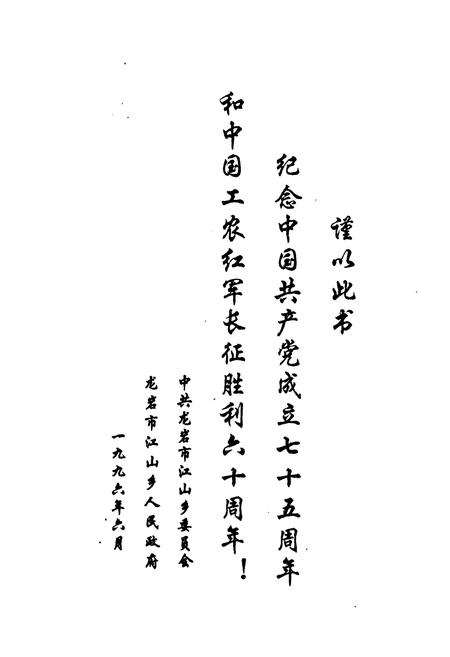 谨以此书
纪念中国共产党成立七十五周年
和中国工农红军长征胜利六十周年！
中共龙岩市江山乡委员会
龙岩市江山乡人民政府
一九九六年六月